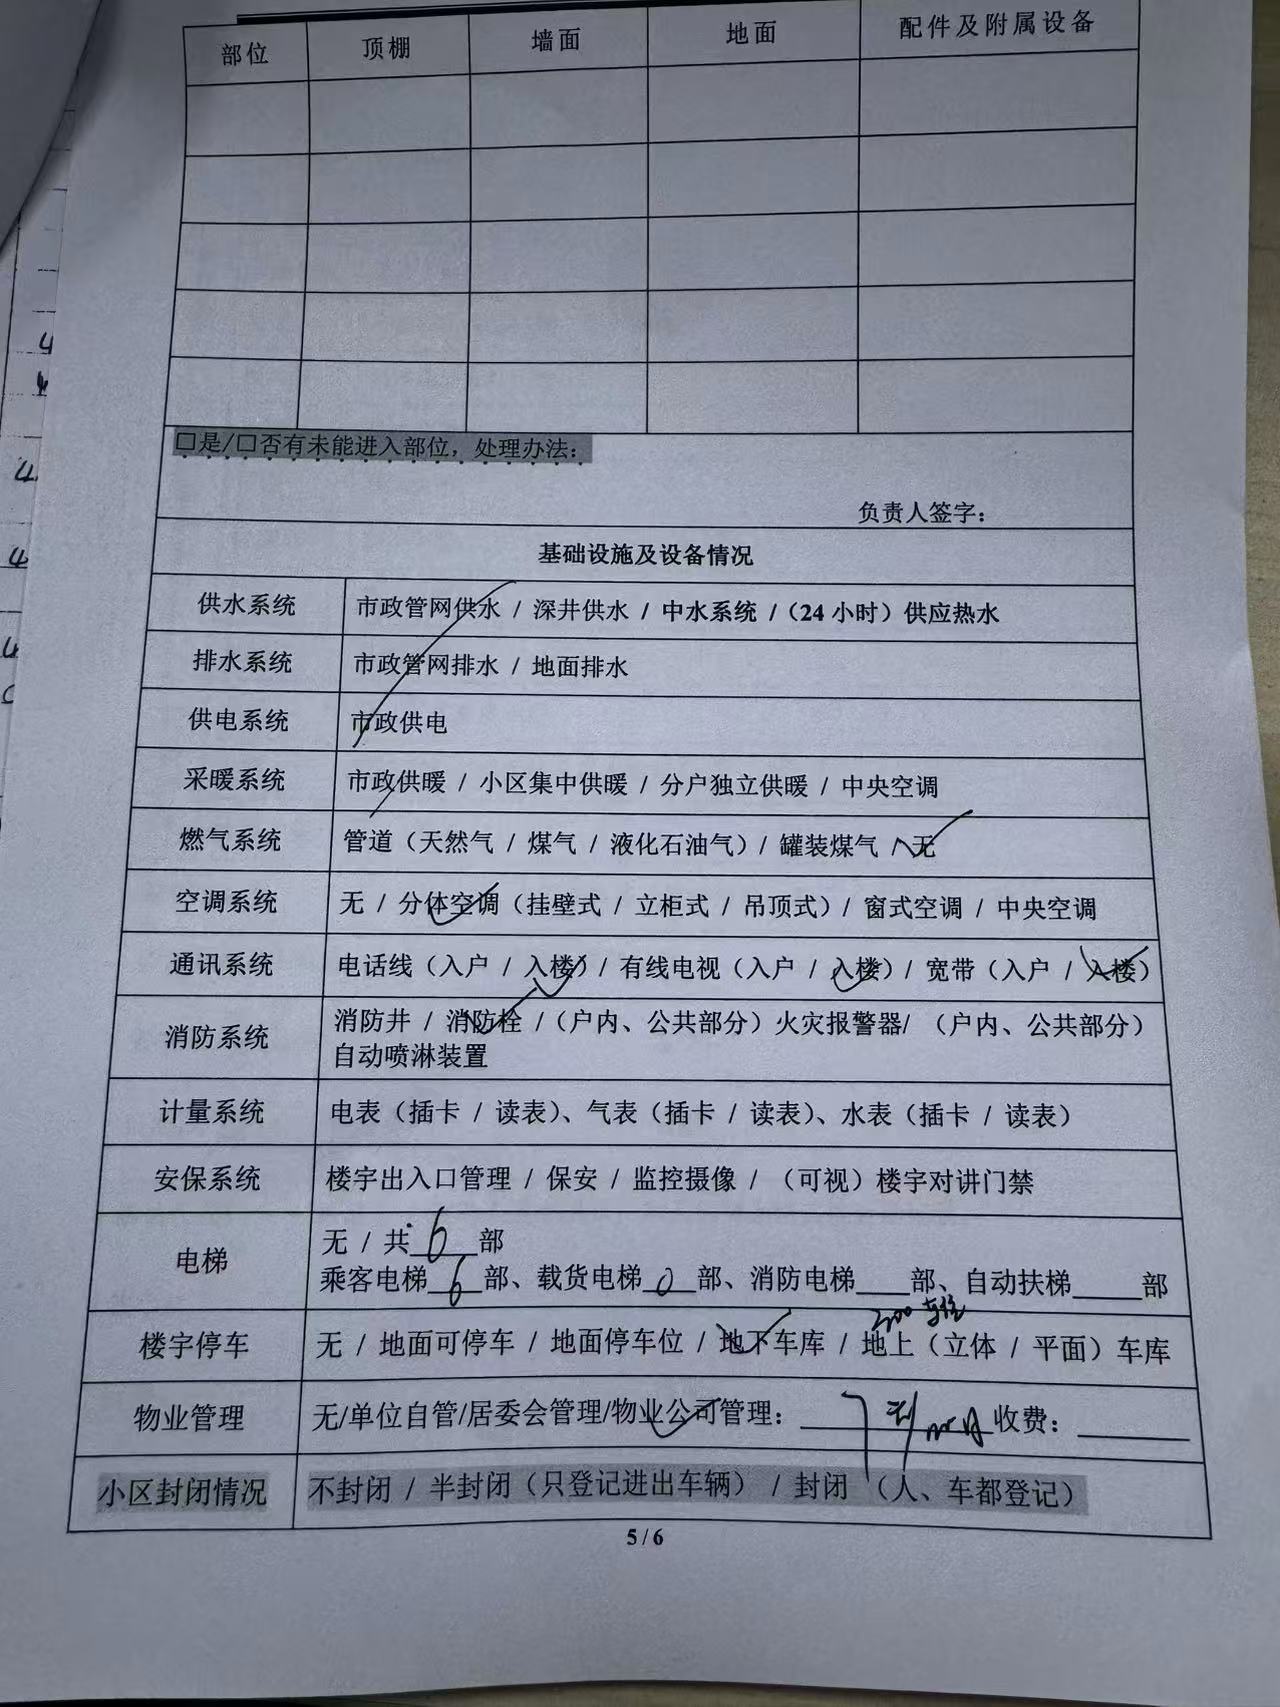 部位 顶棚 墙面 地面 配件及附属设备
□是/□否有未能进入部位，处理办法：
负责人签字：
基础设施及设备情况
供水系统 市政管网供水 / 深井供水 / 中水系统 /（24 小时）供应热水
排水系统 市政管网排水 / 地面排水
供电系统 市政供电
采暖系统 市政供暖 / 小区集中供暖 / 分户独立供暖 / 中央空调
燃气系统 管道（天然气 / 煤气 / 液化石油气）/ 罐装煤气 / 无
空调系统 无 / 分体空调（挂壁式 / 立柜式 / 吊顶式）/ 窗式空调 / 中央空调
通讯系统 电话线（入户 / 入楼）/ 有线电视（入户 / 入楼）/ 宽带（入户 / 入楼）
消防系统 消防井 / 消防栓 /（户内、公共部分）火灾报警器/ （户内、公共部分）
自动喷淋装置
计量系统 电表（插卡 / 读表）、气表（插卡 / 读表）、水表（插卡 / 读表）
安保系统 楼宇出入口管理 / 保安 / 监控摄像 / （可视）楼宇对讲门禁
电梯 无 / 共 6 部
乘客电梯 6 部、载货电梯 0 部、消防电梯____部、自动扶梯_____部
200车位
楼宇停车 无 / 地面可停车 / 地面停车位 / 地下车库 / 地上（立体 / 平面）车库
物业管理 无/单位自管/居委会管理/物业公司管理： 收费：
小区封闭情况 不封闭 / 半封闭（只登记进出车辆） / 封闭 （人、车都登记）
5 / 6